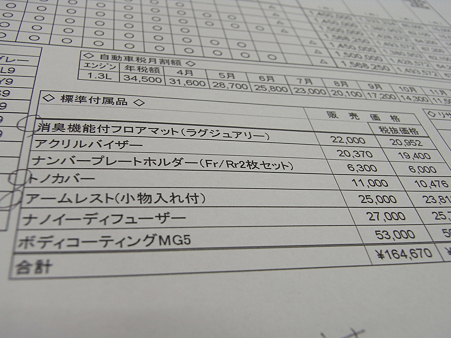 ◇ 自動車税月割額 ◇
エンジン 年税額 4月 5月 6月 7月 8月 9月 10月
1.3L 34,500 31,600 28,700 25,800 23,000 20,100 17,200 14,300
◇ 標準付属品 ◇ 販売価格 税抜価格
消臭機能付フロアマット(ラグジュアリー) 22,000 20,952
アクリルバイザー 20,370 19,400
ナンバープレートホルダー(Fr/Rr2枚セット) 6,300 6,000
トノカバー 11,000 10,476
アームレスト(小物入れ付) 25,000
ナノイーディフューザー 27,000
ボディコーティングMG5 53,000
合計 ¥164,670